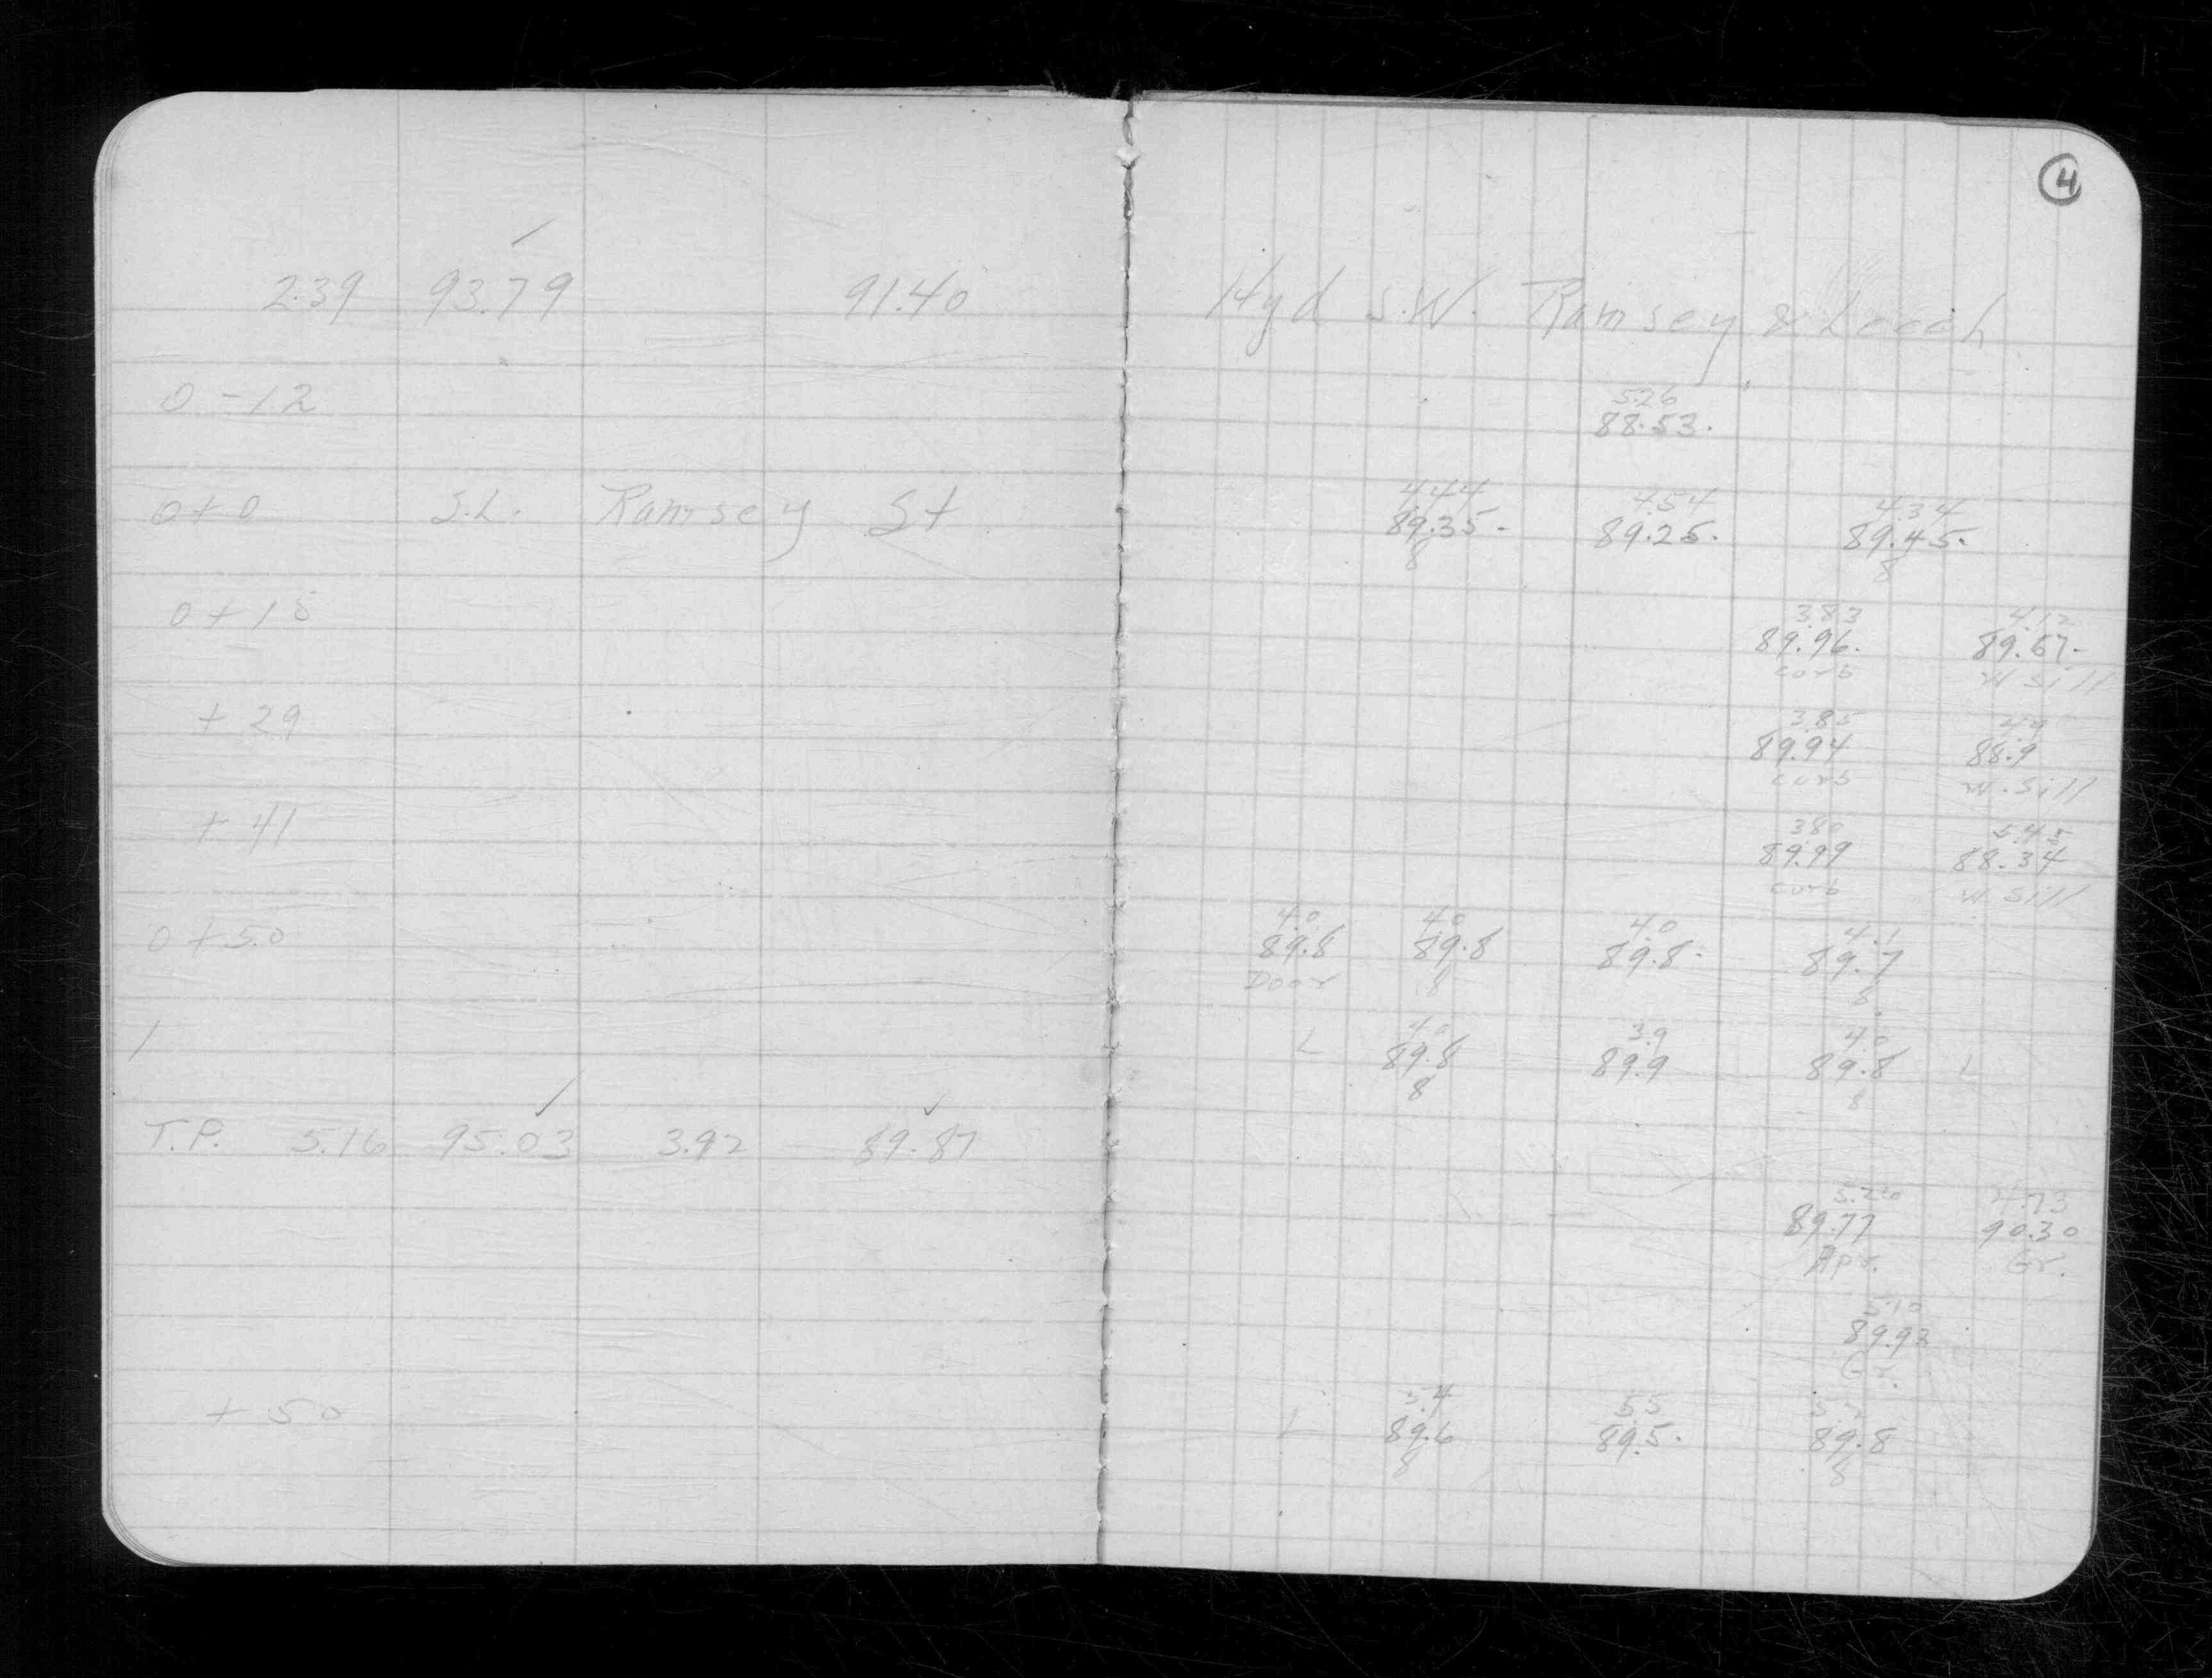 4
2.39 93.79 91.40 Hyd S.W. Ramsey & Leech
0-12 5.26
88.53.
4.44 4.54 4.34
0+0 S.L. Ramsey St 89.35. 89.25. 89.45.
8 8
0+15 3.83 4.12
89.96. 89.67.
curb W Sill
+29 3.85 4.9
89.94 88.9
curb W. Sill
+41 3.80 5.45
89.99 88.34
curb W Sill
4.0 4.0 4.0 4.1
0+50 89.8 89.8 89.8. 89.7
Door 8 8
4.0 3.9 4.0
1 L 89.8 89.9 89.8 L
8 8
T.P. 5.16 95.03 3.92 89.87
5.26 4.73
89.77 90.30
Apr. Gr.
5.10
89.93
Gr.
5.4 5.5
+50 L 89.6 89.5. 89.8
8 8